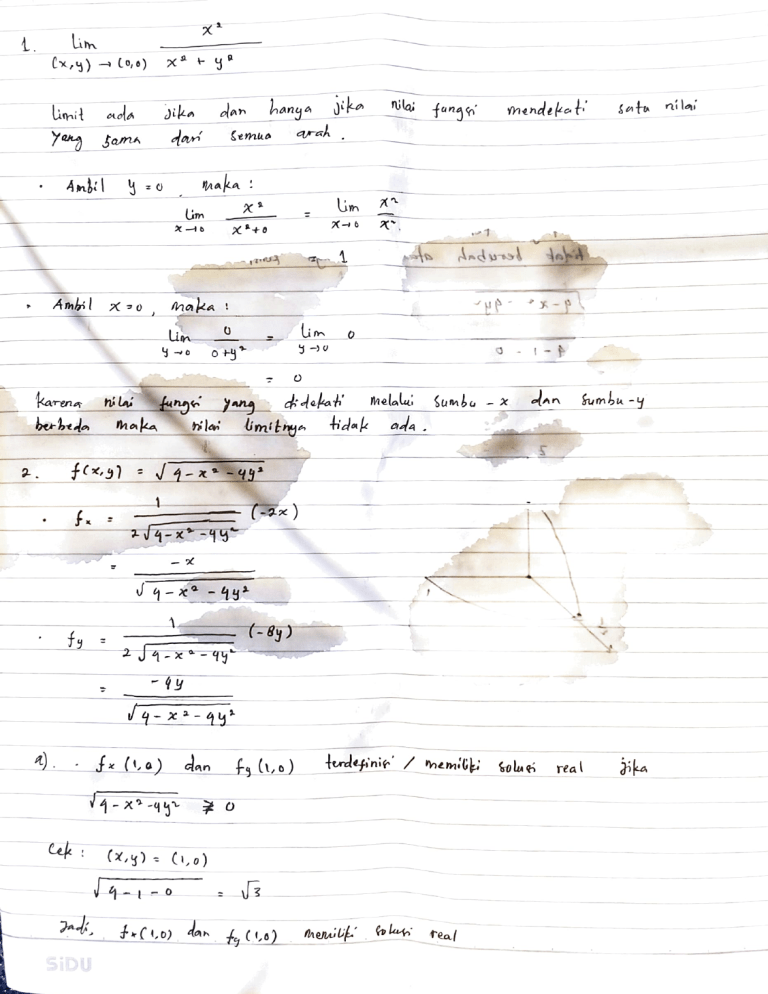 1. lim x² / (x,y) → (0,0) x² + y²
limit ada jika dan hanya jika nilai fungsi mendekati satu nilai
yang sama dari semua arah.
• Ambil y = 0, maka :
lim x→0 x² / (x² + 0) = lim x→0 x² / x²
= 1
• Ambil x = 0, maka :
lim y→0 0 / (0 + y²) = lim y→0 0
= 0
karena nilai fungsi yang didekati melalui sumbu - x dan sumbu - y
berbeda maka nilai limitnya tidak ada.
2. f(x,y) = √(4 - x² - 4y²)
• fx = 1 / (2√(4 - x² - 4y²)) (-2x)
= -x / √(4 - x² - 4y²)
• fy = 1 / (2√(4 - x² - 4y²)) (-8y)
= -4y / √(4 - x² - 4y²)
a). • fx (1,0) dan fy (1,0) terdefinisi / memiliki solusi real jika
√(4 - x² - 4y²)
Cek : (x,y) = (1,0)
√(4 - 1 - 0) = √3
Jadi, fx (1,0) dan fy (1,0) memiliki solusi real
SiDU